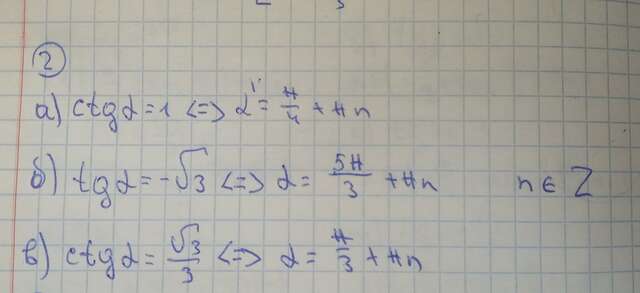 2
а) ctg α = 1 <=> α = π/4 + πn
б) tg α = -√3 <=> α = 5π/3 + πn n ∈ Z
в) ctg α = √3/3 <=> α = π/3 + πn